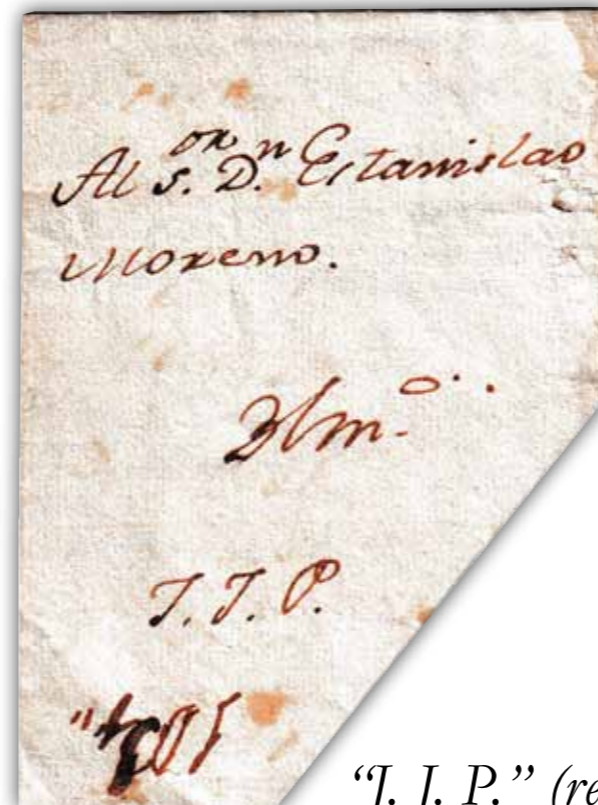 Al S.or D.n Estanislao
Moreno.
J. J. P.
“J. J. P.” (re